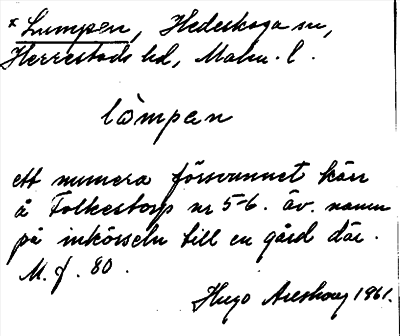 * Lumpen, Hedeskoga sn,
Herrestads hd, Malm. l.
lòmpan
ett numera försvunnet kärr
å Folkestorp nr 5-6. Äv. namn
på inkörseln till en gård där.
M. f. 80.
Hugo Areskoug 1961.